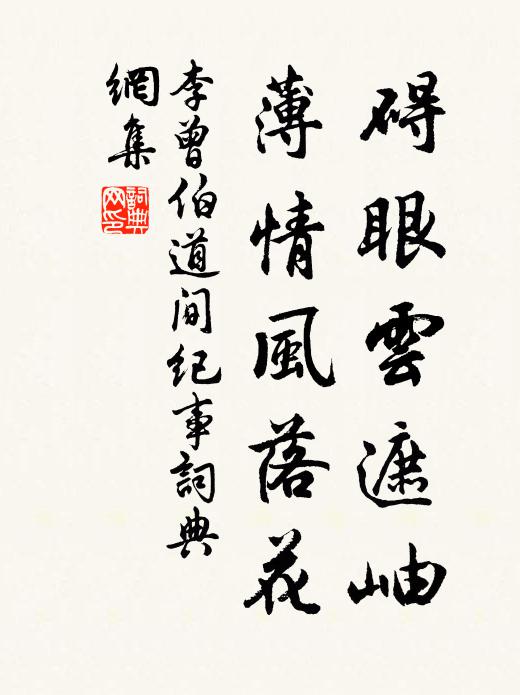 碍眼雲遮岫
薄情風落花
李曾伯道間纪事詞典
網集
詞典
网印